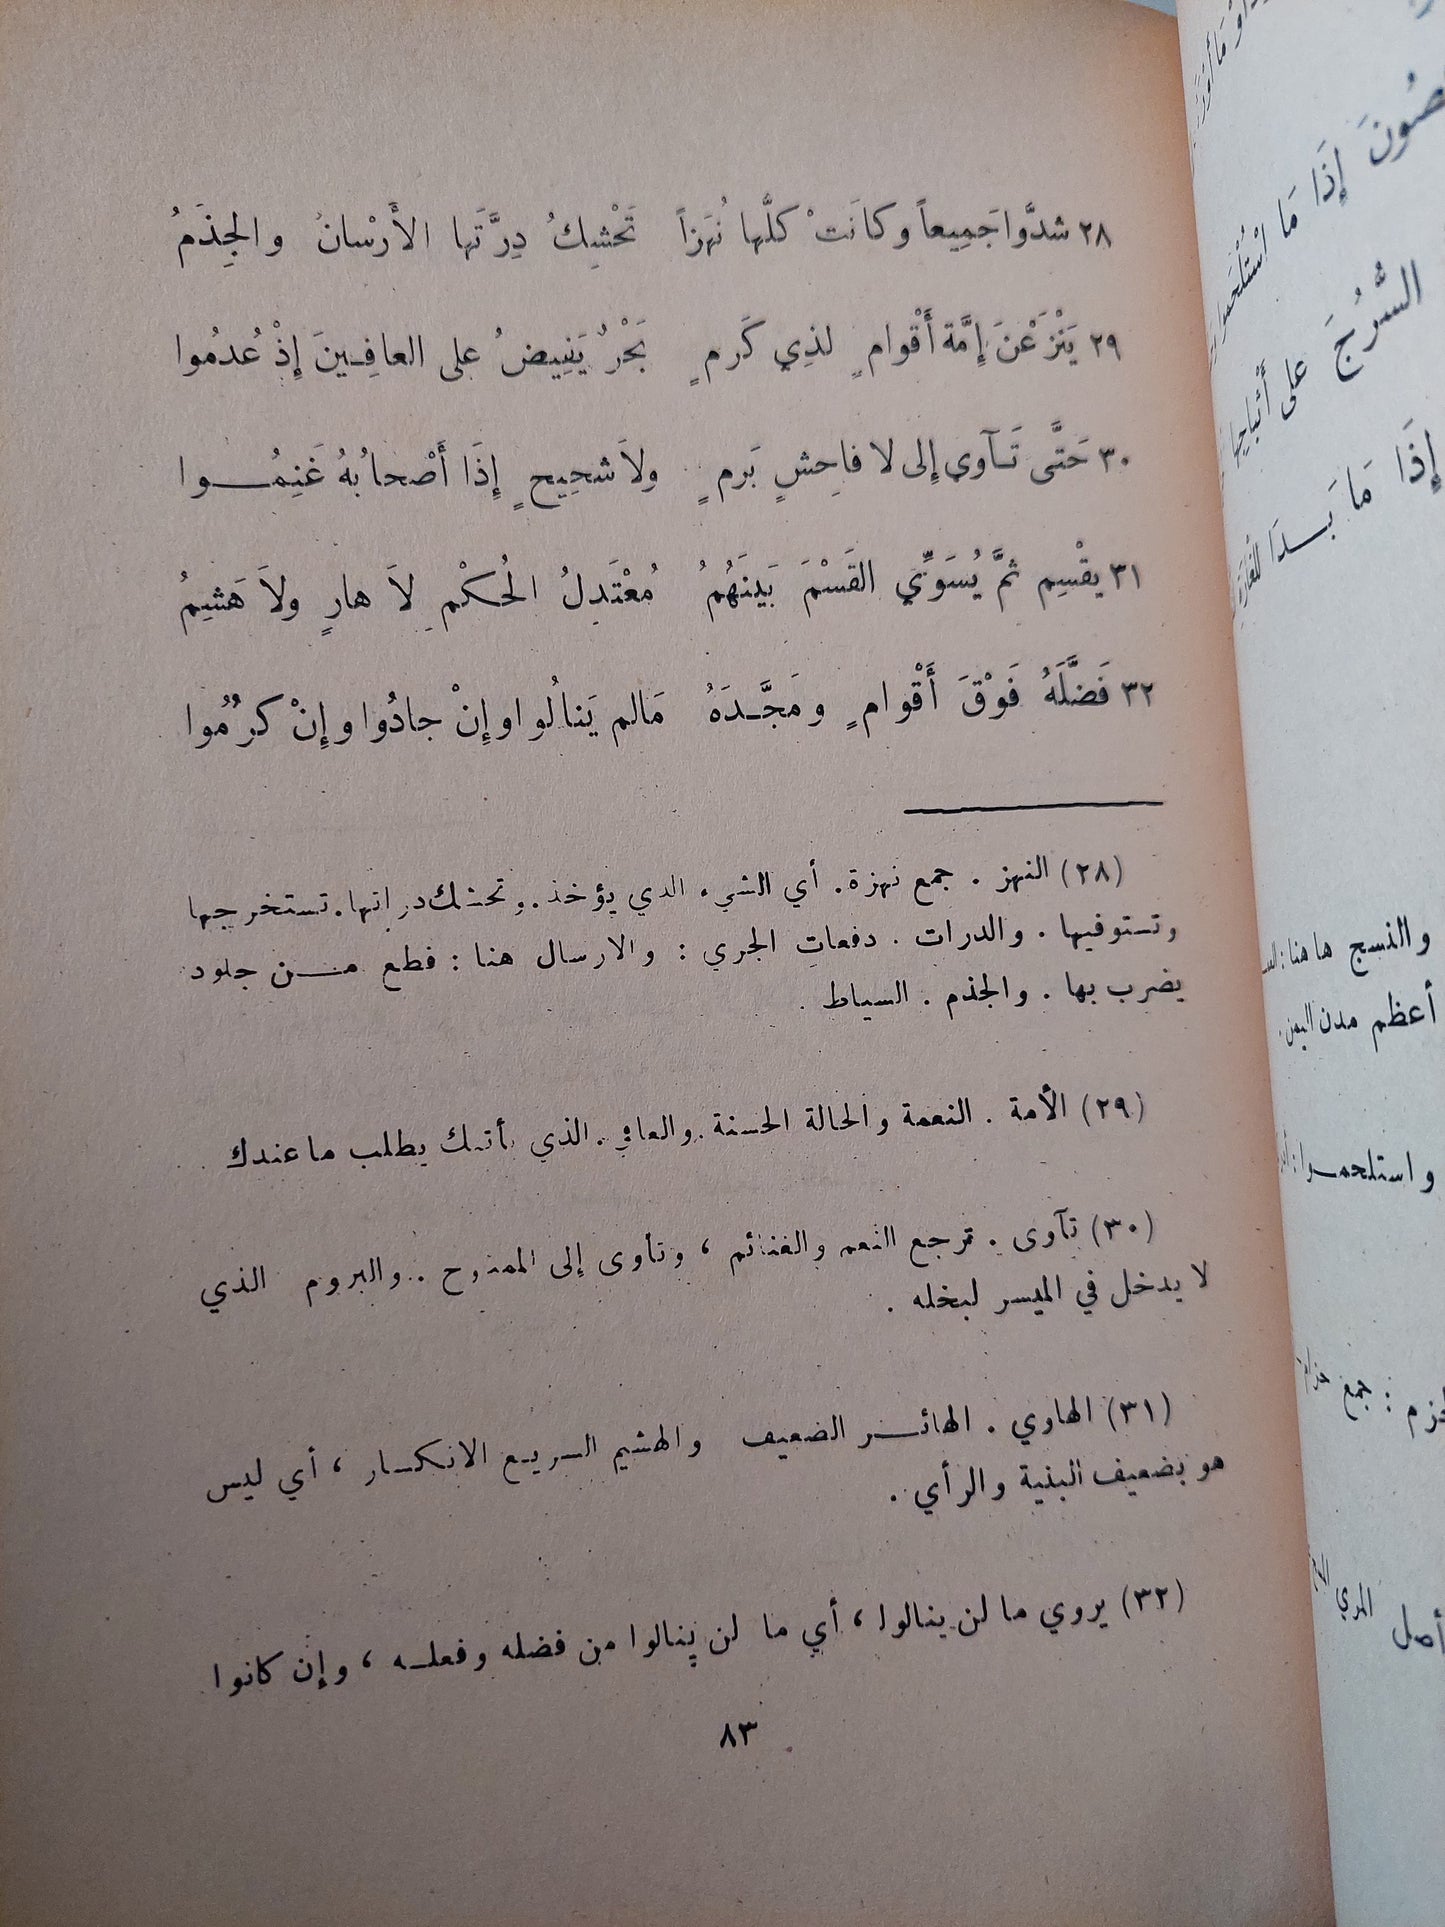 ٢٨ شدَّوا جَمِيعاً وكانَتْ كلَّها نُهَزاً تَحْشِكُ دِرَّتَها الأَرْسانُ والجِذَمُ
٢٩ يَنْزَعْنَ إِمَّة أَقْوامٍ لذِي كَرمٍ بَحْرٌ يَفِيضُ على العافِينَ إِذْ عُدمُوا
٣٠ حَتَّى تَآوى إِلى لا فاحِشٍ بَرمٍ ولاَ شحِيحٍ إِذَا أَصْحابُهُ غَنِمُــوا
٣١ يقْسِم ثمَّ يُسَوِّي القَسْمَ بَينَهُمُ مُعْتَدِلُ الحُكْمِ لاَ هارٍ ولاَ هَشيمُ
٣٢ فَضَّلَهُ فَوْقَ أَقْوامٍ ومَجَّـدَهُ مَالم يَنالُوا وإِنْ جادُوا وإِنْ كرُمُوا
(٢٨) النهز . جمع نهزة. أي الشيء الذي يؤخذ. وتحشك دراتها. تستخرجها
وتستوفيها . والدرات . دفعات الجري : والارسال هنا : قطع مـن جلود
يضرب بها . والجذم . السياط .
(٢٩) الأمة . النعمة والحالة الحسنة . والعافي . الذي يأتيك يطلب ما عندك
(٣٠) تآوى . ترجع النعم والغنائم ، وتأوى إلى الممدوح . والبروم الذي
لا يدخل في الميسر لبخله .
(٣١) الهاوي . الهائــر الضعيف والهشيم السريع الانكسار ، أي ليس
هو بضعيف البنية والرأي .
(٣٢) يروي ما لن ينالوا ، أي ما لن ينالوا من فضله وفعلـه ، وإن كانوا
٨٣
صُونَ إِذَا مَا اسْتُلْحمـوا
السُّرُجَ على أَثْباجِها
إِذَا مَا بَـدَا للْغارَةِ
والنسج ها هنا :
أعظم مدن اليمن.
واستلحمـوا :
: جمع حزام
أصل المري